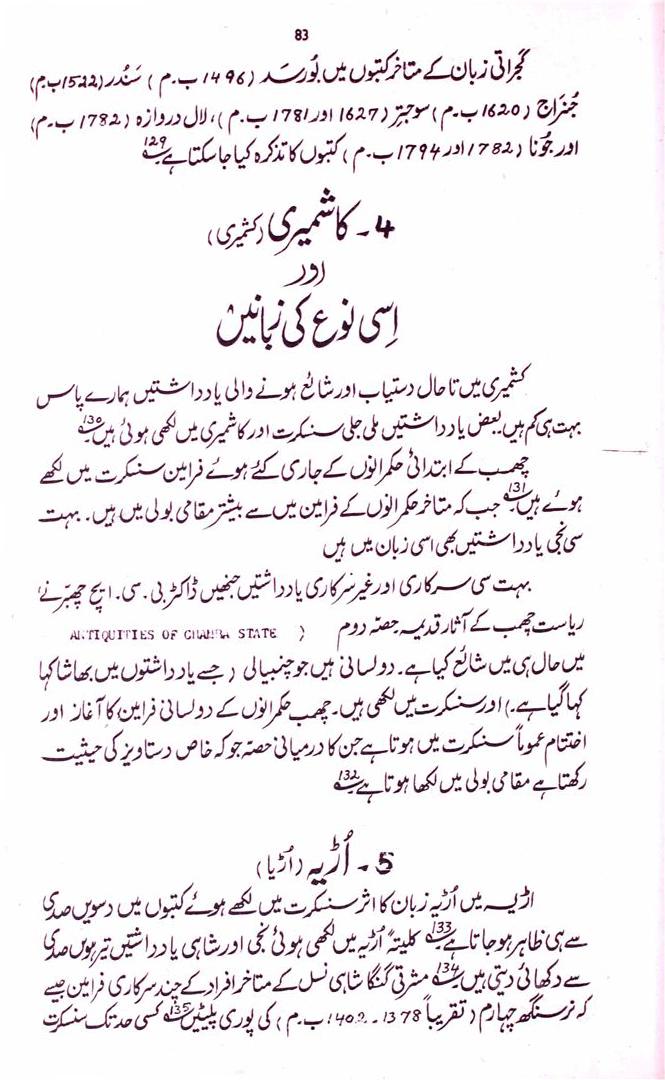 83
گجراتی زبان کے متاخر کتبوں میں بُورسَد (1496 ب۔م) سَنُدر (1522 ب۔م)
جُنرَاج (1620 ب۔م) سوجِتر (1627 اور 1781 ب۔م)، لال دروازہ (1782 ب۔م)
اور جُونا (1782 اور 1794 ب۔م) کتبوں کا تذکرہ کیا جاسکتا ہے 129
4۔ کاشمیری (کشمیری)
اور
اِسی نوع کی زبانیں
کشمیری میں تاحال دستیاب اور شائع ہونے والی یادداشتیں ہمارے پاس
بہت ہی کم ہیں بعض یادداشتیں ملی جلی سنسکرت اور کاشمیری میں لکھی ہوئی ہیں 130
چھمب کے ابتدائی حکمرانوں کے جاری کئے ہوئے فرامین سنسکرت میں لکھے
ہوئے ہیں 131 جب کہ متاخر حکمرانوں کے فرامین میں سے بیشتر مقامی بولی میں ہیں۔ بہت
سی نجی یادداشتیں بھی اسی زبان میں ہیں
بہت سی سرکاری اور غیر سرکاری یادداشتیں جنھیں ڈاکٹر بی۔سی۔ایچ چھبّر نے
ریاست چھمب کے آثار قدیمہ حصّہ دوم ( ANTIQUITIES OF CHAMBA STATE
میں حال ہی میں شائع کیا ہے۔ دولسانی ہیں جو چنبیالی (جسے یادداشتوں میں بھاشا کہا
کہا گیا ہے۔) اور سنسکرت میں لکھی ہیں۔ چھمب حکمرانوں کے دولسانی فرامین کا آغاز اور
اختتام عموماً سنسکرت میں ہوتا ہے جن کا درمیانی حصّہ جو کہ خاص دستاویز کی حیثیت
رکھتا ہے مقامی بولی میں لکھا ہوتا ہے 132
5۔ اُڑیہ (اُڑیا)
اڑیسہ میں اُڑیہ زبان کا اثر سنسکرت میں لکھے ہوئے کتبوں میں دسویں صدی
سے ہی ظاہر ہوجاتا ہے 133 کلیتہً اُڑیہ میں لکھی ہوئی نجی اور شاہی یادداشتیں تیرہویں صدی
سے دکھائی دیتی ہیں 134 مشرقی گنگا شاہی نسل کے متاخر افراد کے چند سرکاری فرامین جیسے
کہ نرسنگھ چہارم (تقریباً 1378۔1402 ب۔م) کی پوری پلیٹیں 135 کسی حد تک سنسکرت